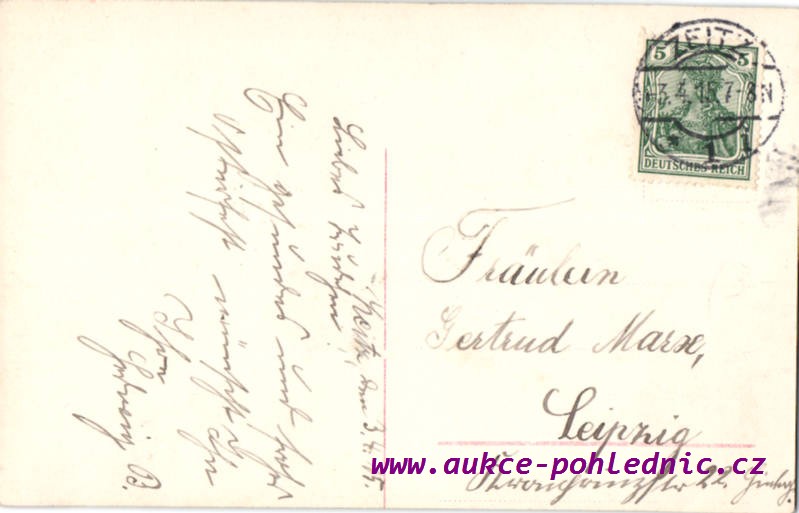 Zeitz, den 3.4.15.
Liebes
Ein gesundes und frohes
Osterfest wünscht
Ihr
Hedwig B.
5 5
ZEITZ
-3.4.15.7-8N
* 1 l
DEUTSCHES REICH
Fräulein
Gertrud Marx,
Leipzig
22
www.aukce-pohlednic.cz